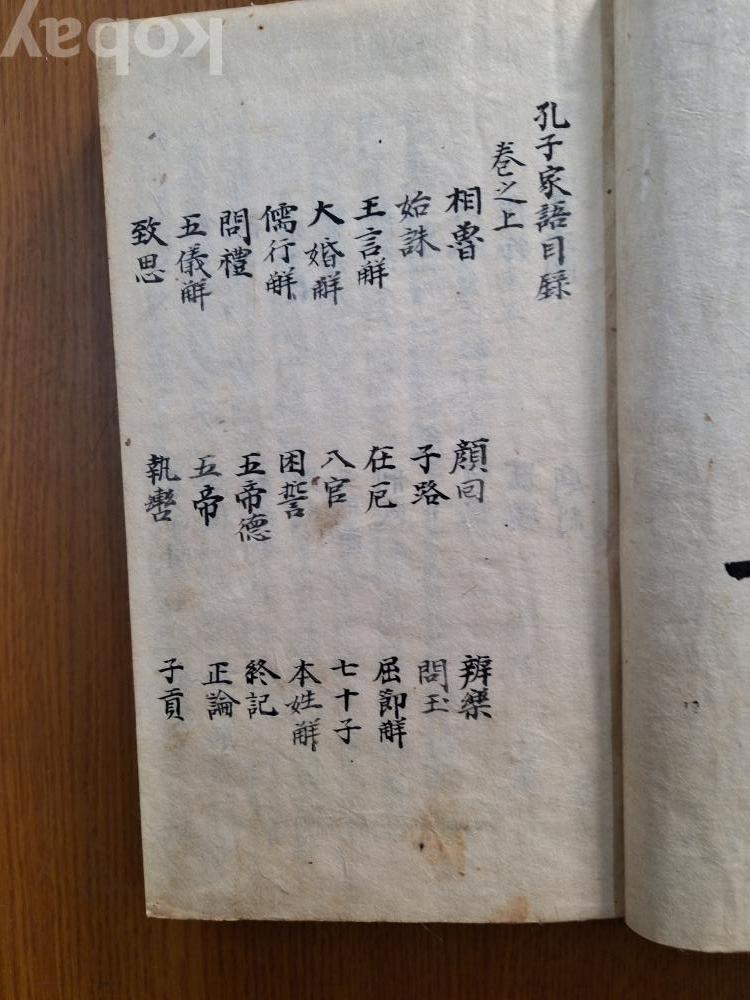 孔子家語目錄
卷之上
相魯
始誅
王言解
大婚解
儒行解
問禮
五儀解
致思
顔回
子路
在厄
入官
困誓
五帝德
五帝
執轡
辨樂
問玉
屈節解
七十子
本姓解
終記
正論
子貢
kobay